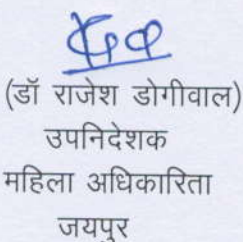 (डॉ राजेश डोगीवाल)
उपनिदेशक
महिला अधिकारिता
जयपुर